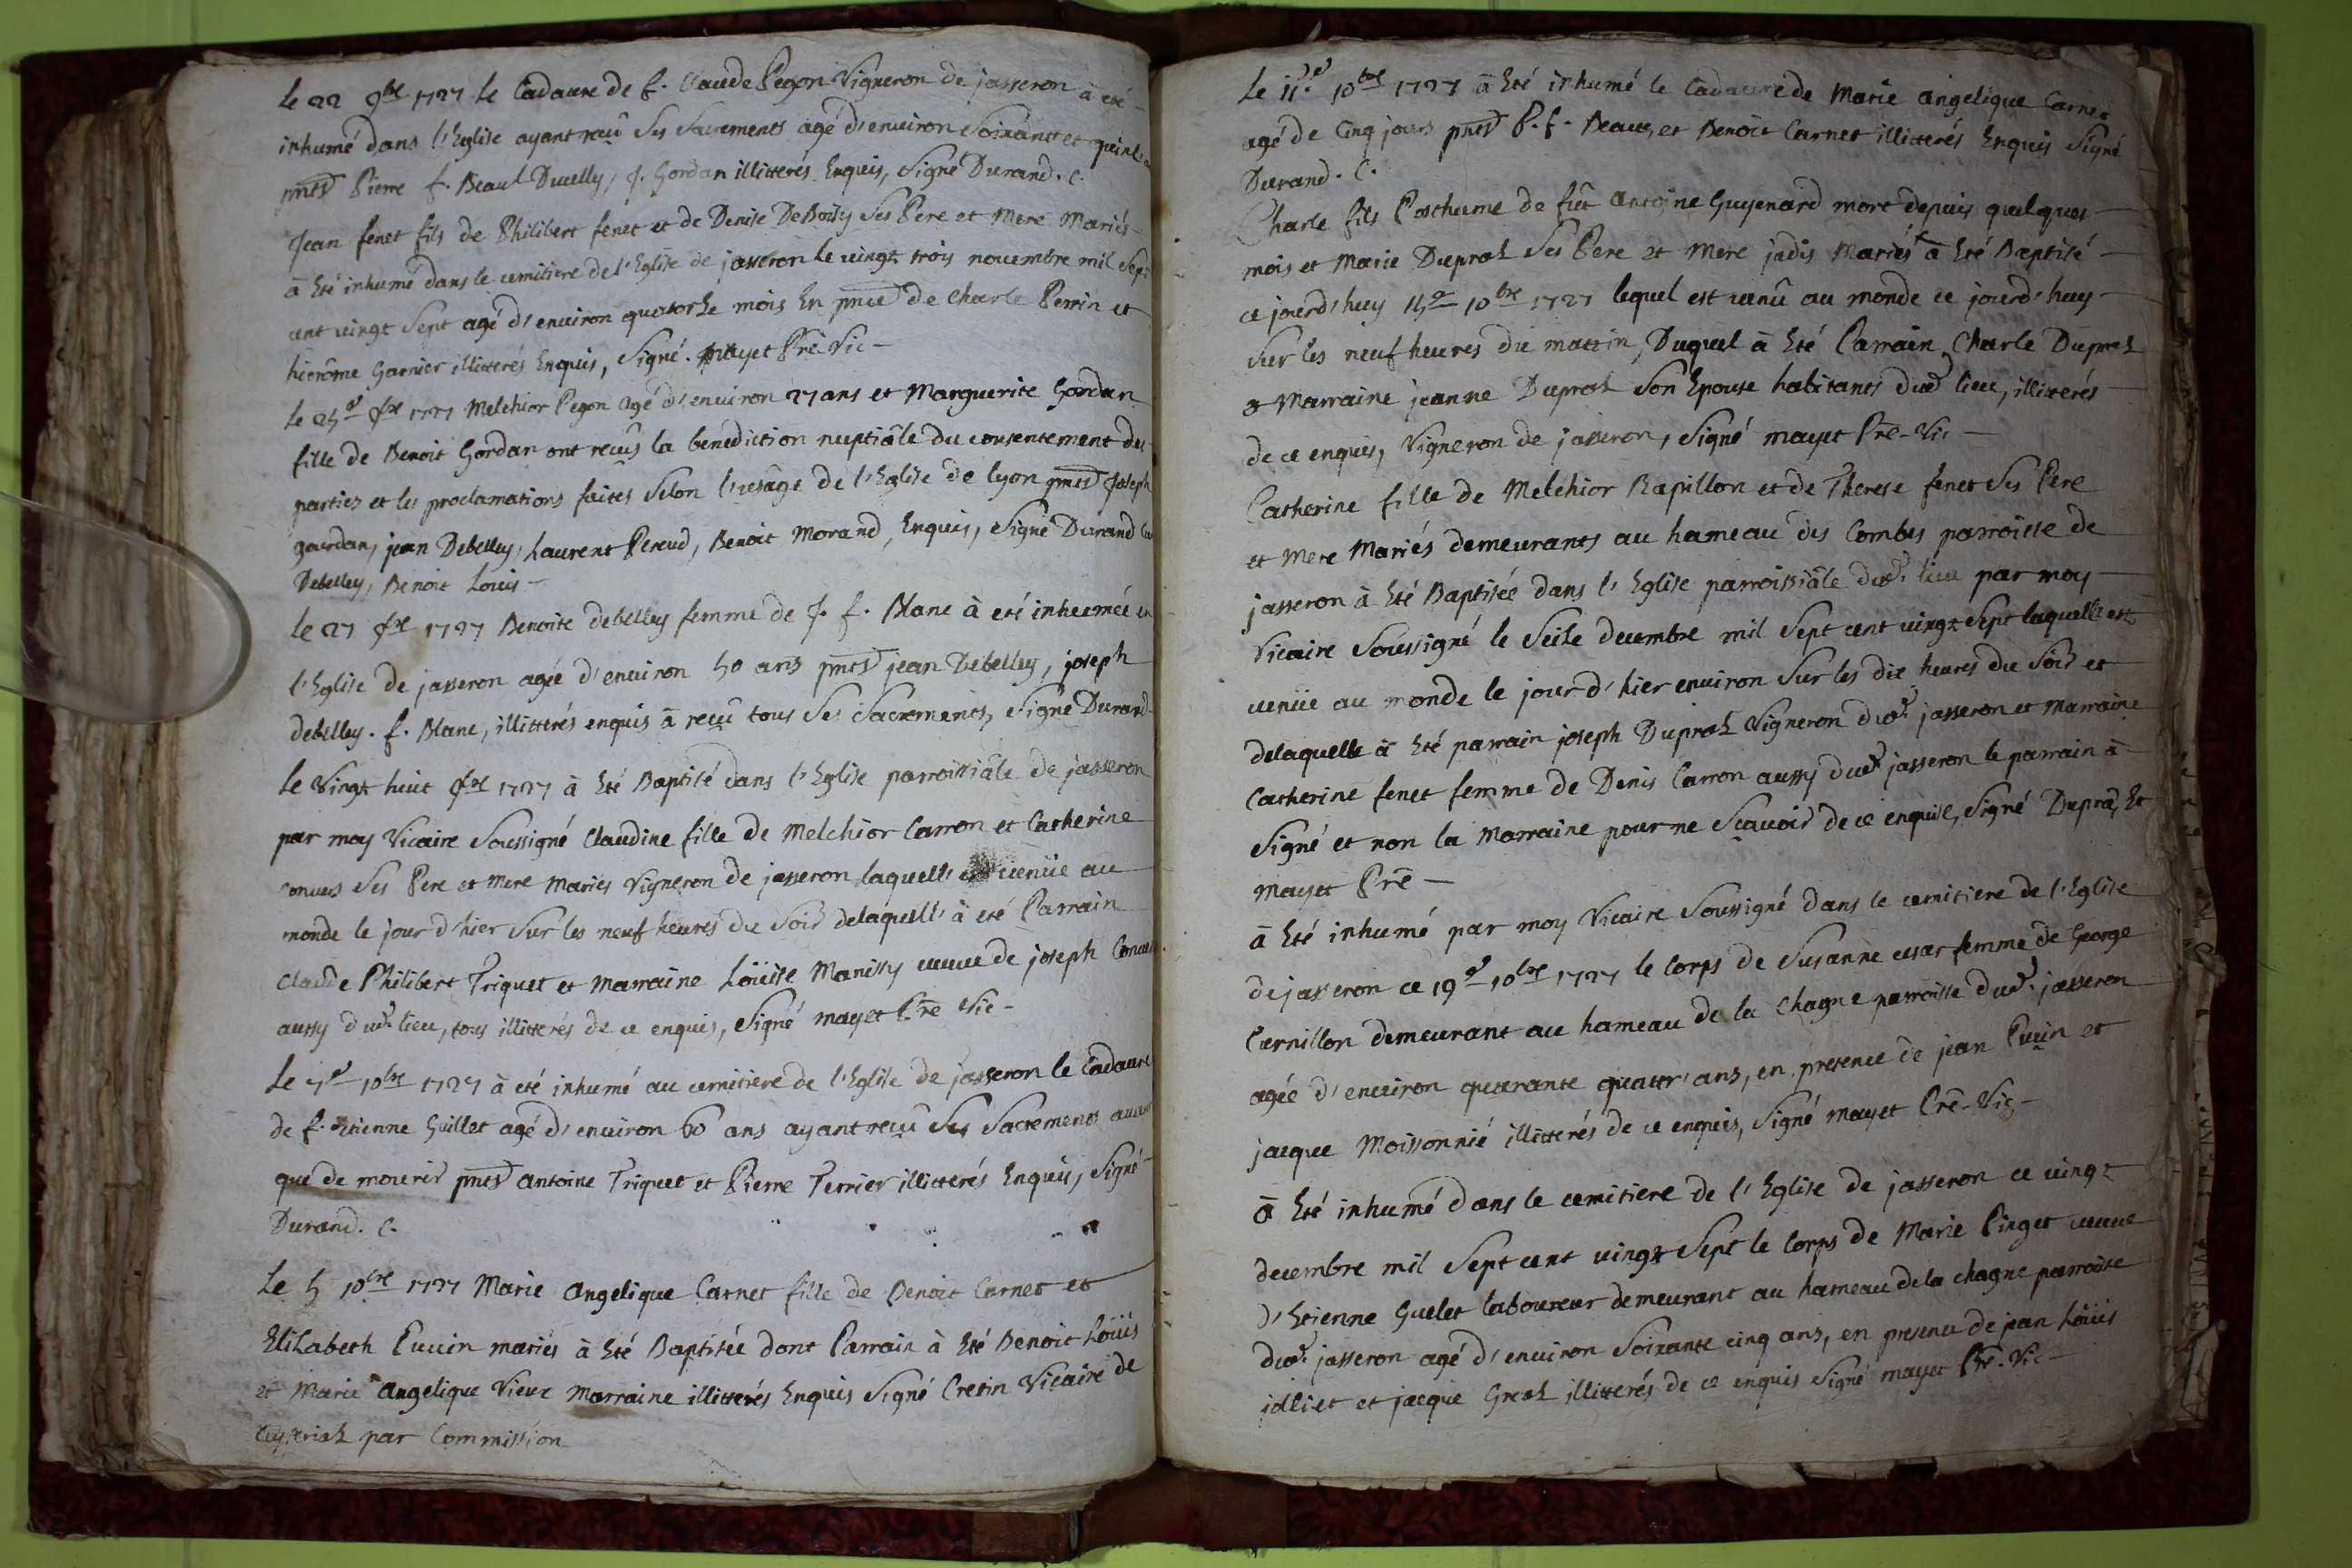 Le 22 9bre 1727 le Cadavre de f. Claude Pegon Vigneron de jasseron à eté
inhumé dans l'Eglise ayant reçû Ses Sacrements agé d'environ Soixante et quinze
pnts Pierre f. Beaul Duelly, J. Gordan illitterés Enquis, Signé Durand. C.
Jean fenet fils de Philibert fenet et de Denise DeBoisy Ses Pere et Mere Mariés
à Eté inhumé dans le cemitiere de l'Eglise de jasseron le vingt trois novembre mil Sept
cent vingt Sept agé d'environ quatorze mois En pnce de Charle Perrin et
hierôme Garnier illitterés Enquis, Signé. mayet Pre Vic
le 25e 9bre 1727 Melchior Pegon agé d'environ 27 ans et Marguerite Gordan
fille de Benoit Gordan ont reçûs la benediction nuptiâle du consentement des
parties et les proclamations faites Selon l'usâge de l'Eglise de lyon pnts Joseph
gourdan, jean Debelley, Laurent Pereud, Benoit Morand, Enquis, Signé Durand
Debelley, Benoit Louis
le 27 9bre 1727 Benoite debelley femme de J. f. Blanc à eté inhumée en
l'Eglise de jasseron agée d'environ 50 ans pnts jean Debelley, joseph
debelley. f. Blanc, illitterés enquis à reçu tous Ses Sacrements, Signé Durand
le Vingt huit 9bre 1727 à Eté Baptisé dans l'Eglise parroissiâle de jasseron
par moy Vicaire Soussigné Claudine fille de Melchior Carron et Catherine
Convers Ses Pere et Mere Mariés Vigneron de jasseron laquelle est venüe au
monde le jour d'hier Sur les neuf heures du Soir delaquelle à eté Parrain
Claude Philibert Triquet et Marraine Loüise Manissy veuve de joseph
aussy dud. lieu, tous illitterés de ce enquis, Signé mayet Pre Vic
Le 7e 10bre 1727 à eté inhumé au cemitiere de l'Eglise de jasseron le Cadavre
de f. Etienne Guillet agé d'environ 60 ans ayant reçu Ses Sacrements avant
que de mourir pnts Antoine Triquet et Pierre Terrier illitterés Enquis, Signé
Durand. C.
Le 5 10bre 1727 Marie Angelique Carnet fille de Benoit Carnet et
Elizabeth Puvin mariés à Eté Baptisée dont Parrain à Eté Benoit Loüis
et Marie Angelique Vieux Marraine illitterés Enquis Signé Cretin Vicaire de
Ceyzeriaz par Commission
Le 11e 10bre 1727 à Eté inhumé le Cadavre de Marie Angelique Carnet
agé de Cinq jours pnts P. f. Beaul, et Benoit Carnet illitterés Enquis Signé
Durand. C.
Charle fils Posthume de fût Antoine Guyenard mort depuis quelques
mois et Marie Dupraz Ses Pere et Mere jadis Mariés à Eté Baptisé
ce jourd'huy 15e 10bre 1727 lequel est venû au monde ce jourd'huy
Sur les neuf heures du mattin, Duquel à Eté Parrain Charle Dupraz
et Marraine jeanne Dupraz Son Epouse habitants dud lieu, illitterés
de ce enquis, Vigneron de jasseron, Signé mayet Pre-Vic
Catherine fille de Melchior Rapillon et de Therese fenet Ses Pere
et Mere Mariés demeurants au hameau des Combes parroisse de
jasseron à Eté Baptisée dans l'Eglise parroissiâle dud. lieu par moy
Vicaire Soussigné le Seize decembre mil Sept cent vingt Sept laquelle est
venüe au monde le jour d'hier environ Sur les dix heures du Soir et
delaquelle à Eté parrain joseph Dupraz Vigneron dud. jasseron et Marraine
Catherine fenet femme de Denis Carron aussy dud. jasseron le parrain à
Signé et non la Marraine pour ne Scavoir de ce enquise, Signé Dupraz, Et
mayet Pre
à Eté inhumé par moy Vicaire Soussigné dans le cemitiere de l'Eglise
de jasseron ce 19e 10bre 1727 le Corps de Susanne cesar femme de George
Curnillon demeurant au hameau de la Chagne parroisse dud. jasseron
agée d'environ quarante quattr'ans, en presence de jean Puvin et
jacque Moissonnié illitterés de ce enquis, Signé mayet Pre-Vic
à Eté inhumé dans le cemitiere de l'Eglise de jasseron ce vingt
decembre mil Sept cent vingt Sept le Corps de Marie Pinget veuve
d'Etienne Guelet laboureur demeurant au hameau dela chagne parroisse
dud. jasseron agé d'environ Soixante cinq ans, en presence de jean Loüis
jolliet et jacque Greaz illitterés de ce enquis Signé mayet Pre-Vic